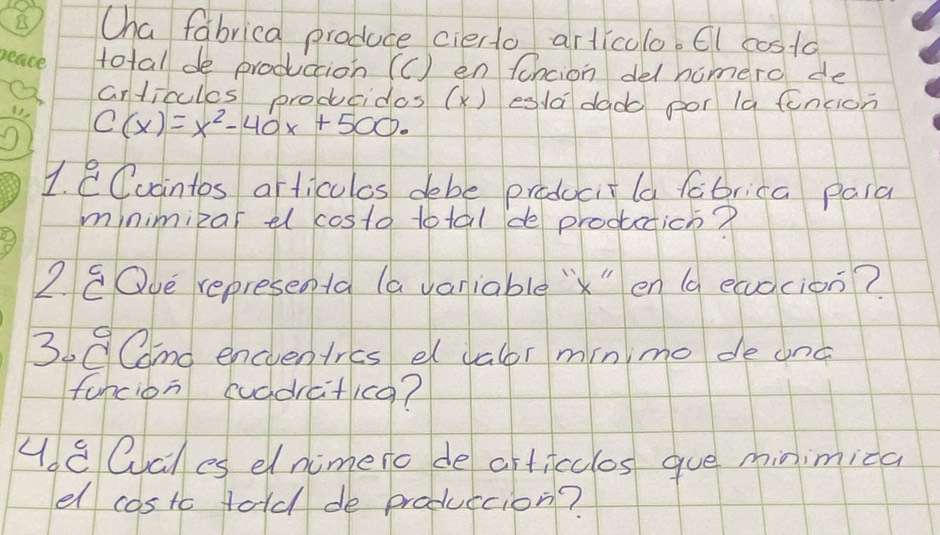 Una fábrica produce cierto artículo. El costo
peace
total de producción (C) en función del número de
artículos producidos (x) está dado por la función
C(x)=x²-40x+500.
1. ¿Cuántos artículos debe producir la fábrica para
minimizar el costo total de producción?
2. ¿Qué representa la variable "x" en la ecuación?
3. ¿Cómo encuentras el valor mínimo de una
función cuadrática?
4. ¿Cuál es el número de artículos que minimiza
el costo total de produccion?